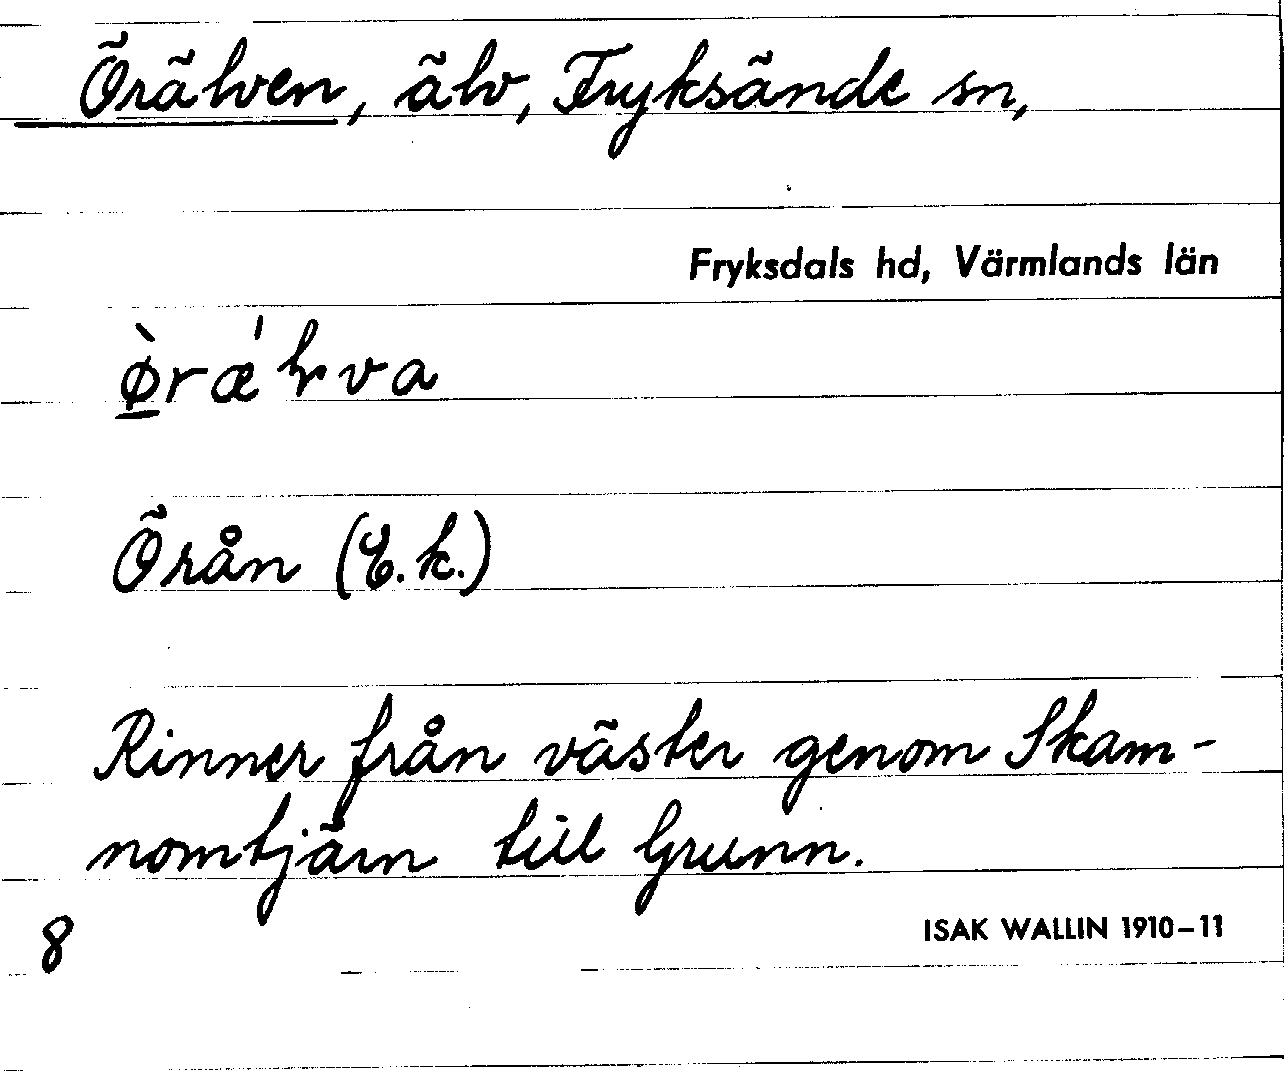 Örälven, älv, Fryksände sn,
Fryksdals hd, Värmlands län
Örån (E.k.)
Rinner från väster genom Skam-
nomtjärn till Grunn.
8
ISAK WALLIN 1910-11